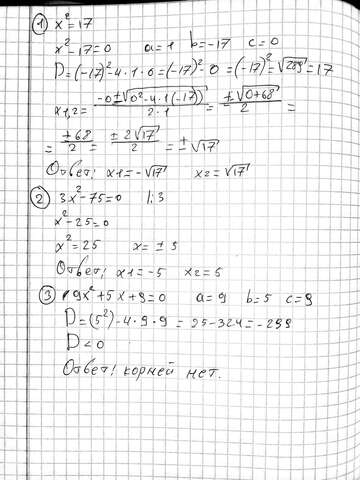 ① x²=17
x²-17=0 a=1 b=-17 c=0
D=(-17)²-4·1·0=(-17)²-0=(-17)²=√289=17
x1,2=(-0±√(0²-4·1(-17)))/(2·1)=(±√(0+68))/2=
=±68/2=±2√17/2=±√17
Ответ: x1=-√17 x2=√17
② 3x²-75=0 |:3
x²-25=0
x²=25 x=±5
Ответ: x1=-5 x2=5
③ 9x²+5x+9=0 a=9 b=5 c=9
D=(5²)-4·9·9=25-324=-299
D<0
Ответ: корней нет.